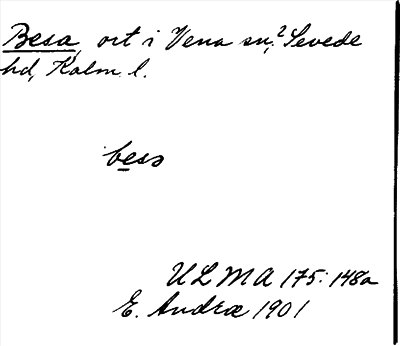 Besa, ort i Vena sn, 2 Sevede
hd, Kalm. l.
besɔ
ULMA 175:148a
E. Andræ 1901